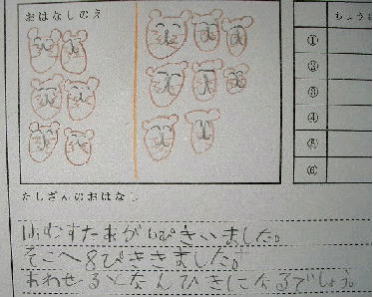 おはなしのえ
ちょうせ
①
②
③
④
⑤
⑥
たしざんのおはなし
はむすたあが6ぴきいました。
そこへ8ぴききました。
あわせるとなんひきになるでしょう。